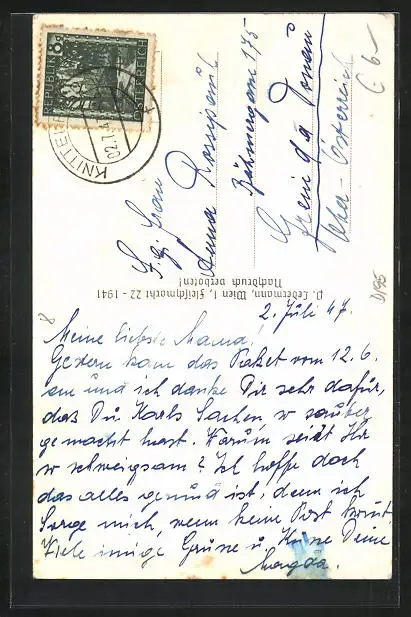 REPUBLIK ÖSTERREICH
8
KNITTELF
02.7.4
S.g. Frau
Anna
175
Grein a/d Donau
Ober-Österreich
P. Ledermann, Wien I, Fleischmarkt 22 - 1941
Nachdruck verboten!
2. Juli 47.
Meine liebste Mama!
Gestern kam das Paket vom 12.6.
an und ich danke Dir sehr dafür,
daß Du Karls Sachen so sauber
gemacht hast. Warum seid Ihr
so schweigsam? Ich hoffe doch
das alles gesund ist, denn ich
Sorge mich, wenn keine Post kommt.
Viele innige Grüße u. Küsse Deine
Magda.